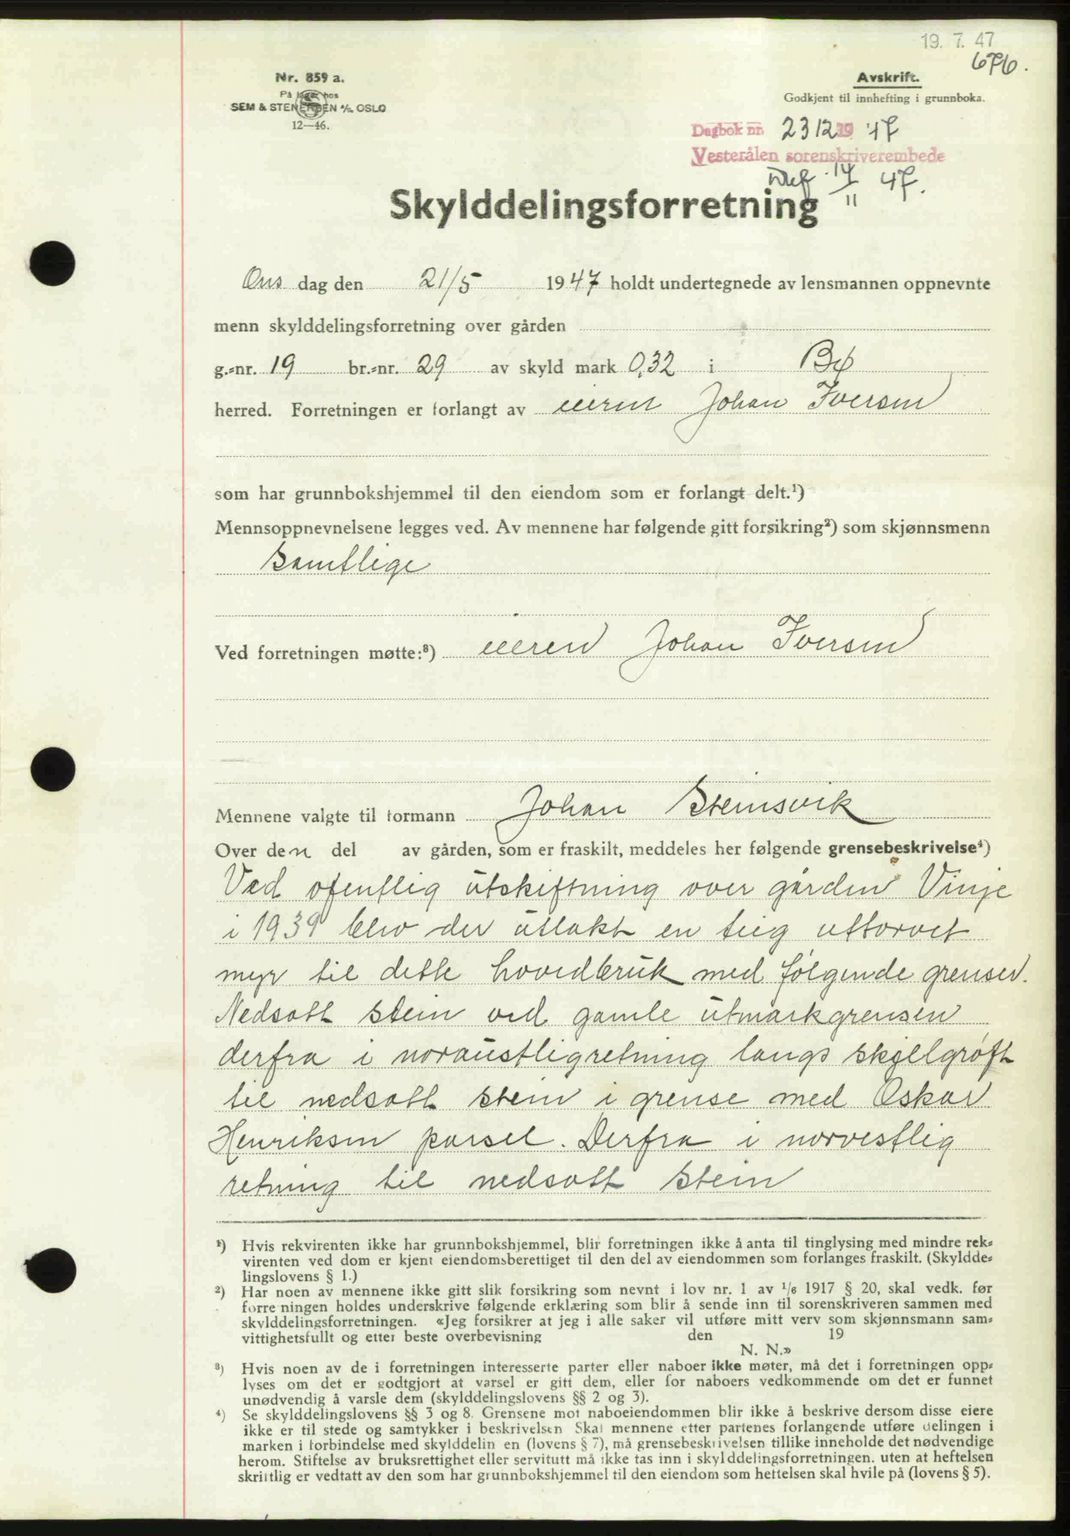 19. 7. 47
676.
Nr. 859 a.
På lager hos
SEM & STENERSEN A/S, OSLO
12—46.
Avskrift.
Godkjent til innhefting i grunnboka.
Dagbok nr. 2312 19 47
Vesterålen sorenskriverembede
14/11 47.
Skylddelingsforretning
Ons dag den 21/5 1947 holdt undertegnede av lensmannen oppnevnte
menn skylddelingsforretning over gården
g.-nr. 19 br.-nr. 29 av skyld mark 0,32 i Bø
herred. Forretningen er forlangt av eieren Johan Iversen
som har grunnbokshjemmel til den eiendom som er forlangt delt.¹)
Mennsoppnevnelsene legges ved. Av mennene har følgende gitt forsikring²) som skjønnsmenn
Samtlige
Ved forretningen møtte:³) eieren Johan Iversen
Mennene valgte til formann Johan Steinsvik
Over den del av gården, som er fraskilt, meddeles her følgende grensebeskrivelse⁴)
Ved ofentlig utskiftning over gården Vinje
i 1939 blev der utlakt en teig uttorvet
myr til dette hovedbruk med følgende grenser.
Nedsatt stein ved gamle utmarkgrensen
derfra i noraustligretning langs skjelgrøft
til nedsatt stein i grense med Oskar
Henriksen parsel. Derfra i norvestlig
retning til nedsatt stein
¹) Hvis rekvirenten ikke har grunnbokshjemmel, blir forretningen ikke å anta til tinglysing med mindre rek-
virenten ved dom er kjent eiendomsberettiget til den del av eiendommen som forlanges fraskilt. (Skyldde-
lingslovens § 1.)
²) Har noen av mennene ikke gitt slik forsikring som nevnt i lov nr. 1 av 1/6 1917 § 20, skal vedk. før
forre ningen holdes underskrive følgende erklæring som blir å sende inn til sorenskriveren sammen med
skylddelingsforretningen. «Jeg forsikrer at jeg i alle saker vil utføre mitt verv som skjønnsmann sam-
vittighetsfullt og etter beste overbevisning den 19
N. N.»
³) Hvis noen av de i forretningen interesserte parter eller naboer ikke møter, må det i forretningen opp-
lyses om det er godtgjort at varsel er gitt dem, eller for naboers vedkommende om det er funnet
unødvendig å varsle dem (skylddelingslovens §§ 2 og 3).
⁴) Se skylddelingslovens §§ 3 og 8. Grensene mot naboeiendommen blir ikke å beskrive dersom disse eiere
ikke er til stede og samtykker i beskrivelsen Skal mennene etter partenes forlangende utføre delingen i
marken i forbindelse med skylddelin en (lovens § 7), må grensebeskrivelsen tillike inneholde det nødvendige
herom. Stiftelse av bruksrettighet eller servitutt må ikke tas inn i skylddelingsforretningen. uten at heftelsen
skriftlig er vedtatt av den som har grunnbokshjemmel til den eiendom som heftelsen skal hvile på (lovens § 5).